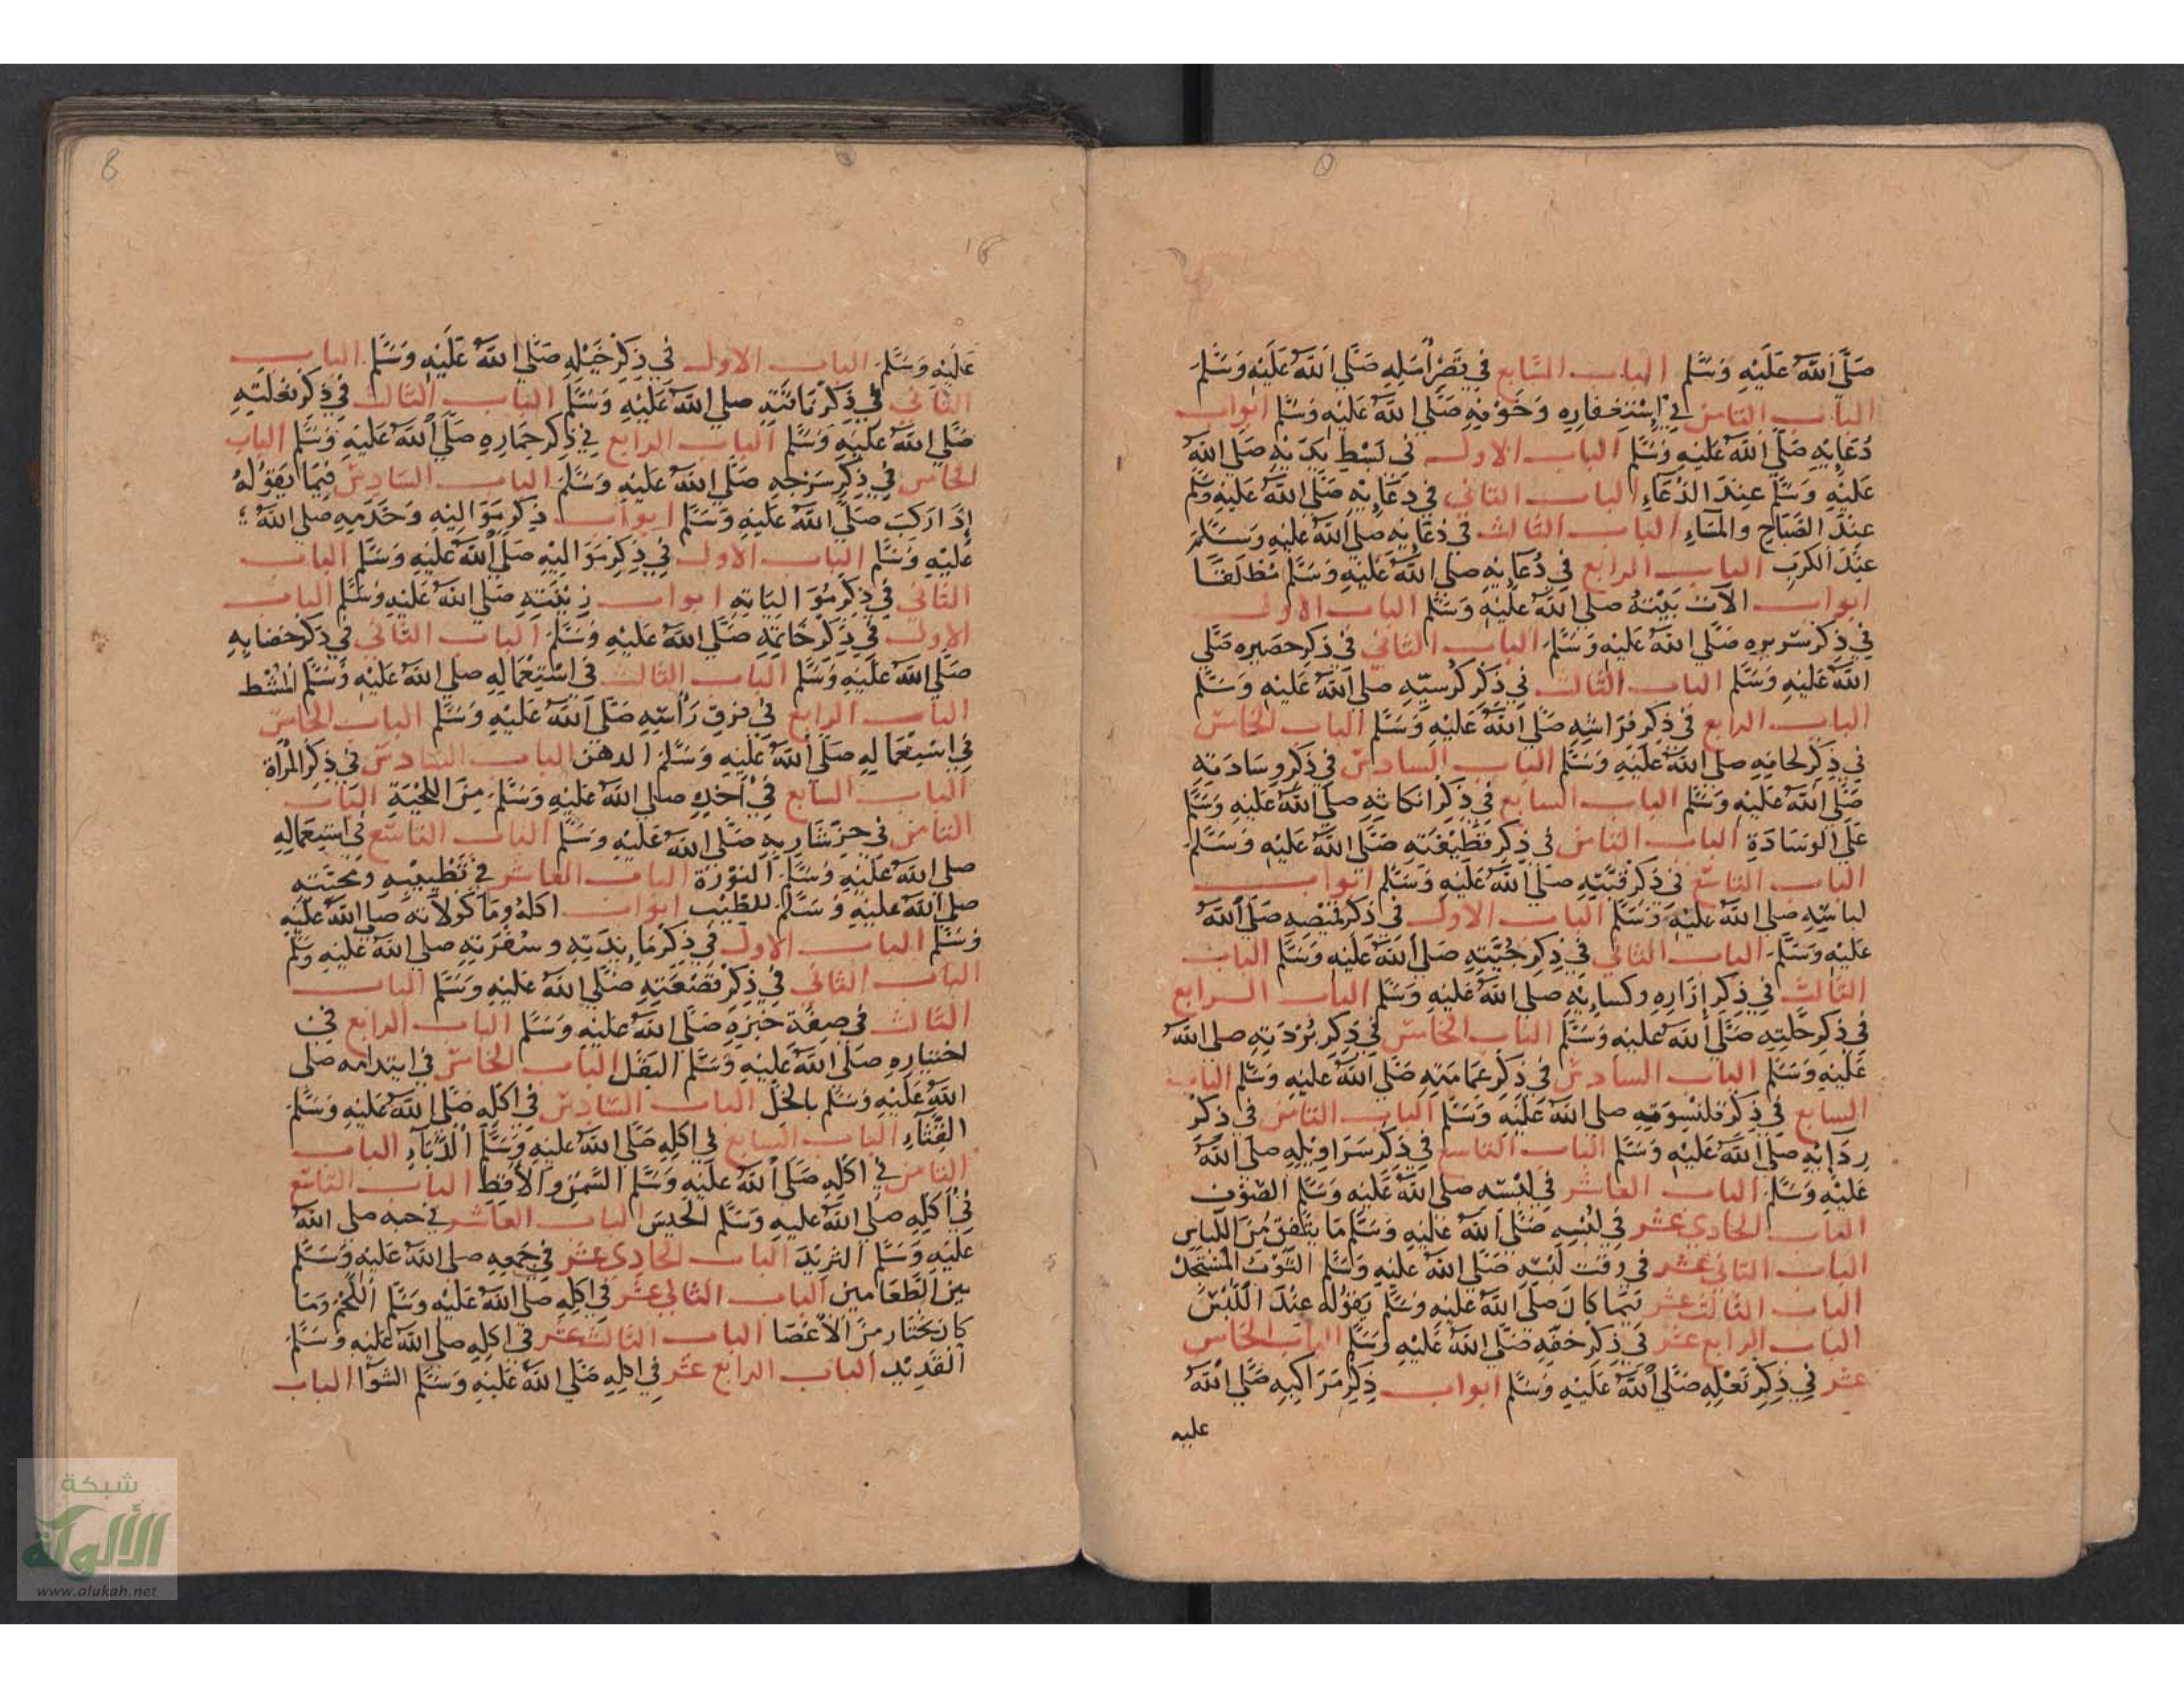 صَلَّى اللَّهُ عَلَيْهِ وَسَلَّم الباب السَّابع في قِصَرِ أَمَلِهِ صَلَّى اللَّهُ عَلَيْهِ وَسَلَّمَ
الباب الثامن في اِسْتِغفارِهِ وَخَوْفِهِ صَلَّى اللَّهُ عَلَيْهِ وَسَلَّم ابواب
دُعَائِهِ صَلَّى اللَّهُ عَلَيْهِ وَسَلَّم الباب الاول في بَسْطِ يَدَيْهِ صَلى اللَّهُ
عَلَيْهِ وَسَلَّم عِندَ الدُعَاءِ الباب الثاني في دعَائِهِ صَلَّى اللَّهُ عَلَيْهِ وَسَلَّم
عِندَ الصَّبَاحِ والمَسَاءِ الباب الثالث في دُعَائِهِ صلى اللَّهُ عَلَيْهِ وَسَلَّمَ
عِندَ الكَربِ الباب الرابع في دُعَائِهِ صلى اللَّهُ عَلَيْهِ وَسَلَّم مُطْلَقًا
ابواب الآت بَيْتهُ صلى اللَّهُ عَلَيْهِ وَسَلَّم الباب الاول
في ذِكرِ سَريرِهِ صَلَّى اللَّهُ عَلَيْهِ وَسَلَّمَ الباب الثاني في ذكرِ حصَيرِهِ صَلَّى
اللَّهُ عَلَيْهِ وَسَلَّم الباب الثالث في ذِكرِ كُرسيِّهِ صلى اللَّهُ عَلَيْهِ وَسَلَّم
الباب الرابع في ذِكرِ فِرَاشِهِ صَلَّى اللَّهُ عَلَيْهِ وَسَلَّم الباب الخامس
في ذِكرِ لحَافِهِ صلى اللَّهُ عَلَيْهِ وَسَلَّم الباب السادس في ذِكرِ وِسَادَتِهِ
صَلَّى اللَّهُ عَلَيْهِ وَسَلَّم الباب السابع في ذِكرِ اتكائِهِ صلى اللَّهُ عَلَيْهِ وَسَلَّم
عَلَى الوِسَادَةِ الباب الثامن في ذِكرِ قَطِيْفَتِهِ صَلَّى اللَّهُ عَلَيْهِ وَسَلَّمَ
الباب التاسع في ذِكرِ قُبَّتِهِ صَلَّى اللَّهُ عَلَيْهِ وَسَلَّم ابواب
لباسِهِ صلى اللَّهُ عَلَيْهِ وَسَلَّم الباب الاول في ذكرِ قمِيْصِهِ صَلَّى اللَّهُ
عَلَيْهِ وَسَلَّمَ الباب الثاني في ذِكرِ جُبَّتِهِ صَلَّى اللَّهُ عَلَيْهِ وَسَلَّم الباب
الثالث في ذِكرِ إِزَارِهِ وكسائِهِ صلى اللَّهُ عَلَيْهِ وَسَلَّم الباب الرابع
في ذِكرِ حُلَّتِهِ صَلَّى اللَّهُ عليْهِ وَسَلَّم الباب الخامس في ذِكرِ بُرْدَتِهِ صلى اللَّهُ
عَلَيْهِ وَسَلَّم الباب السادس في ذِكرِ عمَامَتِهِ صَلَّى اللَّهُ عَلَيْهِ وَسَلَّم الباب
السابع في ذِكرِ قلنْسوَتِهِ صلى اللَّهُ عَلَيْهِ وَسَلَّم الباب الثامن في ذِكْرِ
رِدَائِهِ صَلَّى اللَّهُ عَلَيْهِ وَسَلَّم الباب التاسع في ذِكرِ سَرَاوِيْلِهِ صلى اللَّهُ
عَلَيْهِ وَسَلَّمَ الباب العاشر في لُبْسِهِ صلى اللَّهُ عَلَيْهِ وَسَلَّم الصُّوْف
الباب الحادي عشر في لُبْسِهِ صَلَّى اللَّهُ عَلَيْهِ وَسَلَّم مَا يَتَّفِقُ مِنَ اللِّبَاس
الباب الثاني عشر في وقتِ لُبْسِهِ صَلَّى اللَّهُ عَلَيْهِ وَسَلَّم الثَّوْب المُسْتَجَدّ
الباب الثالث عشر فيمَا كَانَ صَلَّى اللَّهُ عَلَيْهِ وَسَلَّم يَقُوْلُهُ عِنْدَ اللُّبْسِ
الباب الرابع عشر في ذِكرِ خفِّهِ صَلَّى اللَّهُ عَلَيْهِ وَسَلَّم الباب الخامس
عشر في ذِكرِ نَعْلِهِ صَلَّى اللَّهُ عَلَيْهِ وَسَلَّم ابواب ذِكرِ مَرَاكِبِهِ صَلَّى اللَّهُ
عليه
8
عَلَيْهِ وَسَلَّمَ الباب الاول في ذِكرِ خَيْلِهِ صَلَّى اللَّهُ عَلَيْهِ وَسَلَّم الباب
الثاني في ذِكرِ نَاقَتِهِ صلى اللَّهُ عَلَيْهِ وَسَلَّم الباب الثالث في ذِكرِ بَغلَتِهِ
صَلَّى اللَّهُ عَلَيْهِ وَسَلَّم الباب الرابع في ذِكرِ حِمَارِهِ صَلَّى اللَّهُ عَلَيْهِ وَسَلَّم الباب
الخامس في ذِكرِ سَرْجِهِ صَلَّى اللَّهُ عَلَيْهِ وَسَلَّمَ الباب السادس فيمَا يَقوْلهُ
إِذَا رَكِبَ صَلَّى اللَّهُ عَلَيْهِ وَسَلَّم ابواب ذِكرِ مَوَالِيْهِ وَخَدَمِهِ صلى اللَّهُ
عَلَيْهِ وَسَلَّم الباب الاول في ذِكرِ مَوَالِيْهِ صَلَّى اللَّهُ عَلَيْهِ وَسَلَّم الباب
الثاني في ذِكرِ مَوَالِيَاتِهِ ابواب زِيْنَتِهِ صَلى اللَّهُ عَلَيْهِ وَسَلَّم الباب
الاول في ذِكرِ خَاتمِهِ صَلَّى اللَّهُ عَلَيْهِ وَسَلَّمَ الباب الثاني في ذِكرِ خضَابِهِ
صَلَّى اللَّهُ عَلَيْهِ وَسَلَّم الباب الثالث في اسْتِعْمَالِهِ صلى اللَّهُ عَلَيْهِ وَسَلَّم المُشْط
الباب الرابع في فَرقِ رَأْسِهِ صَلَّى اللَّهُ عَلَيْهِ وَسَلَّم الباب الخامس
في اسْتِعْمَالِهِ صَلَّى اللَّهُ عَلَيْهِ وَسَلَّمَ الدهن الباب السادس في ذِكرِ المِرْآة
الباب السابع في أَخْذِهِ صلى اللَّهُ عَلَيْهِ وَسَلَّمَ مِنَ اللِّحْيَةِ الباب
الثامن في جزِّ شَارِبِهِ صَلَّى اللَّهُ عَلَيْهِ وَسَلَّم الباب التاسع في اسْتِعْمَالِهِ
صلى اللَّهُ عَلَيْهِ وَسَلَّمَ النوْرَة الباب العاشر في تَطْيِيْبِهِ ومحبَّتِهِ
صلى اللَّهُ عَلَيْهِ وَسَلَّمَ للطِّيْبِ ابواب اكلهُ وَمَاكولاتهُ صلى اللَّهُ عَلَيْهِ
وَسَلَّم الباب الاول في ذِكرِ مَائِدَتِهِ وسُفرَتِهِ صلى اللَّهُ عَلَيْهِ وَسَلَّم
الباب الثاني في ذِكرِ قصْعَتِهِ صَلَّى اللَّهُ عَلَيْهِ وَسَلَّم الباب
الثالث في صِفَةِ خُبْزِهِ صَلَّى اللَّهُ عَلَيْهِ وَسَلَّم الباب الرابع في
اختيارِهِ صَلَّى اللَّهُ عَلَيْهِ وَسَلَّم البَقْل الباب الخامس في ايتدامه صلى
اللَّهُ عَلَيْهِ وَسَلَّم بالخَلّ الباب السادس في اكلِهِ صَلَّى اللَّهُ عَلَيْهِ وَسَلَّمَ
القِثَّاءِ الباب السابع في اكلِهِ صَلَّى اللَّهُ عَلَيْهِ وَسَلَّم الدُّبَّاءِ الباب
الثامن في اكلِهِ صَلَّى اللَّهُ عَلَيْهِ وَسَلَّم السَّمْنَ والاقِطَ الباب التاسع
في أكلِهِ صَلَّى اللَّهُ عليهِ وَسَلَّم الحَيْسَ الباب العاشر في حبه صلى اللَّهُ
عَلَيْهِ وَسَلَّم الثرِيْدَ الباب الحادي عشر في جَمعِهِ صلى اللَّهُ عَلَيْهِ وَسَلَّم
بين الطَّعَامين الباب الثاني عشر في اكلِهِ صلى اللَّهُ عَلَيْهِ وَسَلَّم اللَّحْمَ وَمَا
كانَ يَخْتَار مِنَ الاعْضَا الباب الثالث عشر في اكلِهِ صلى اللَّهُ عَلَيْهِ وَسَلَّمَ
القَدِيْد الباب الرابع عشر في اكلِهِ صَلَّى اللَّهُ عَلَيْهِ وَسَلَّم الشوَا الباب
شبكة
الألوكة
www.alukah.net